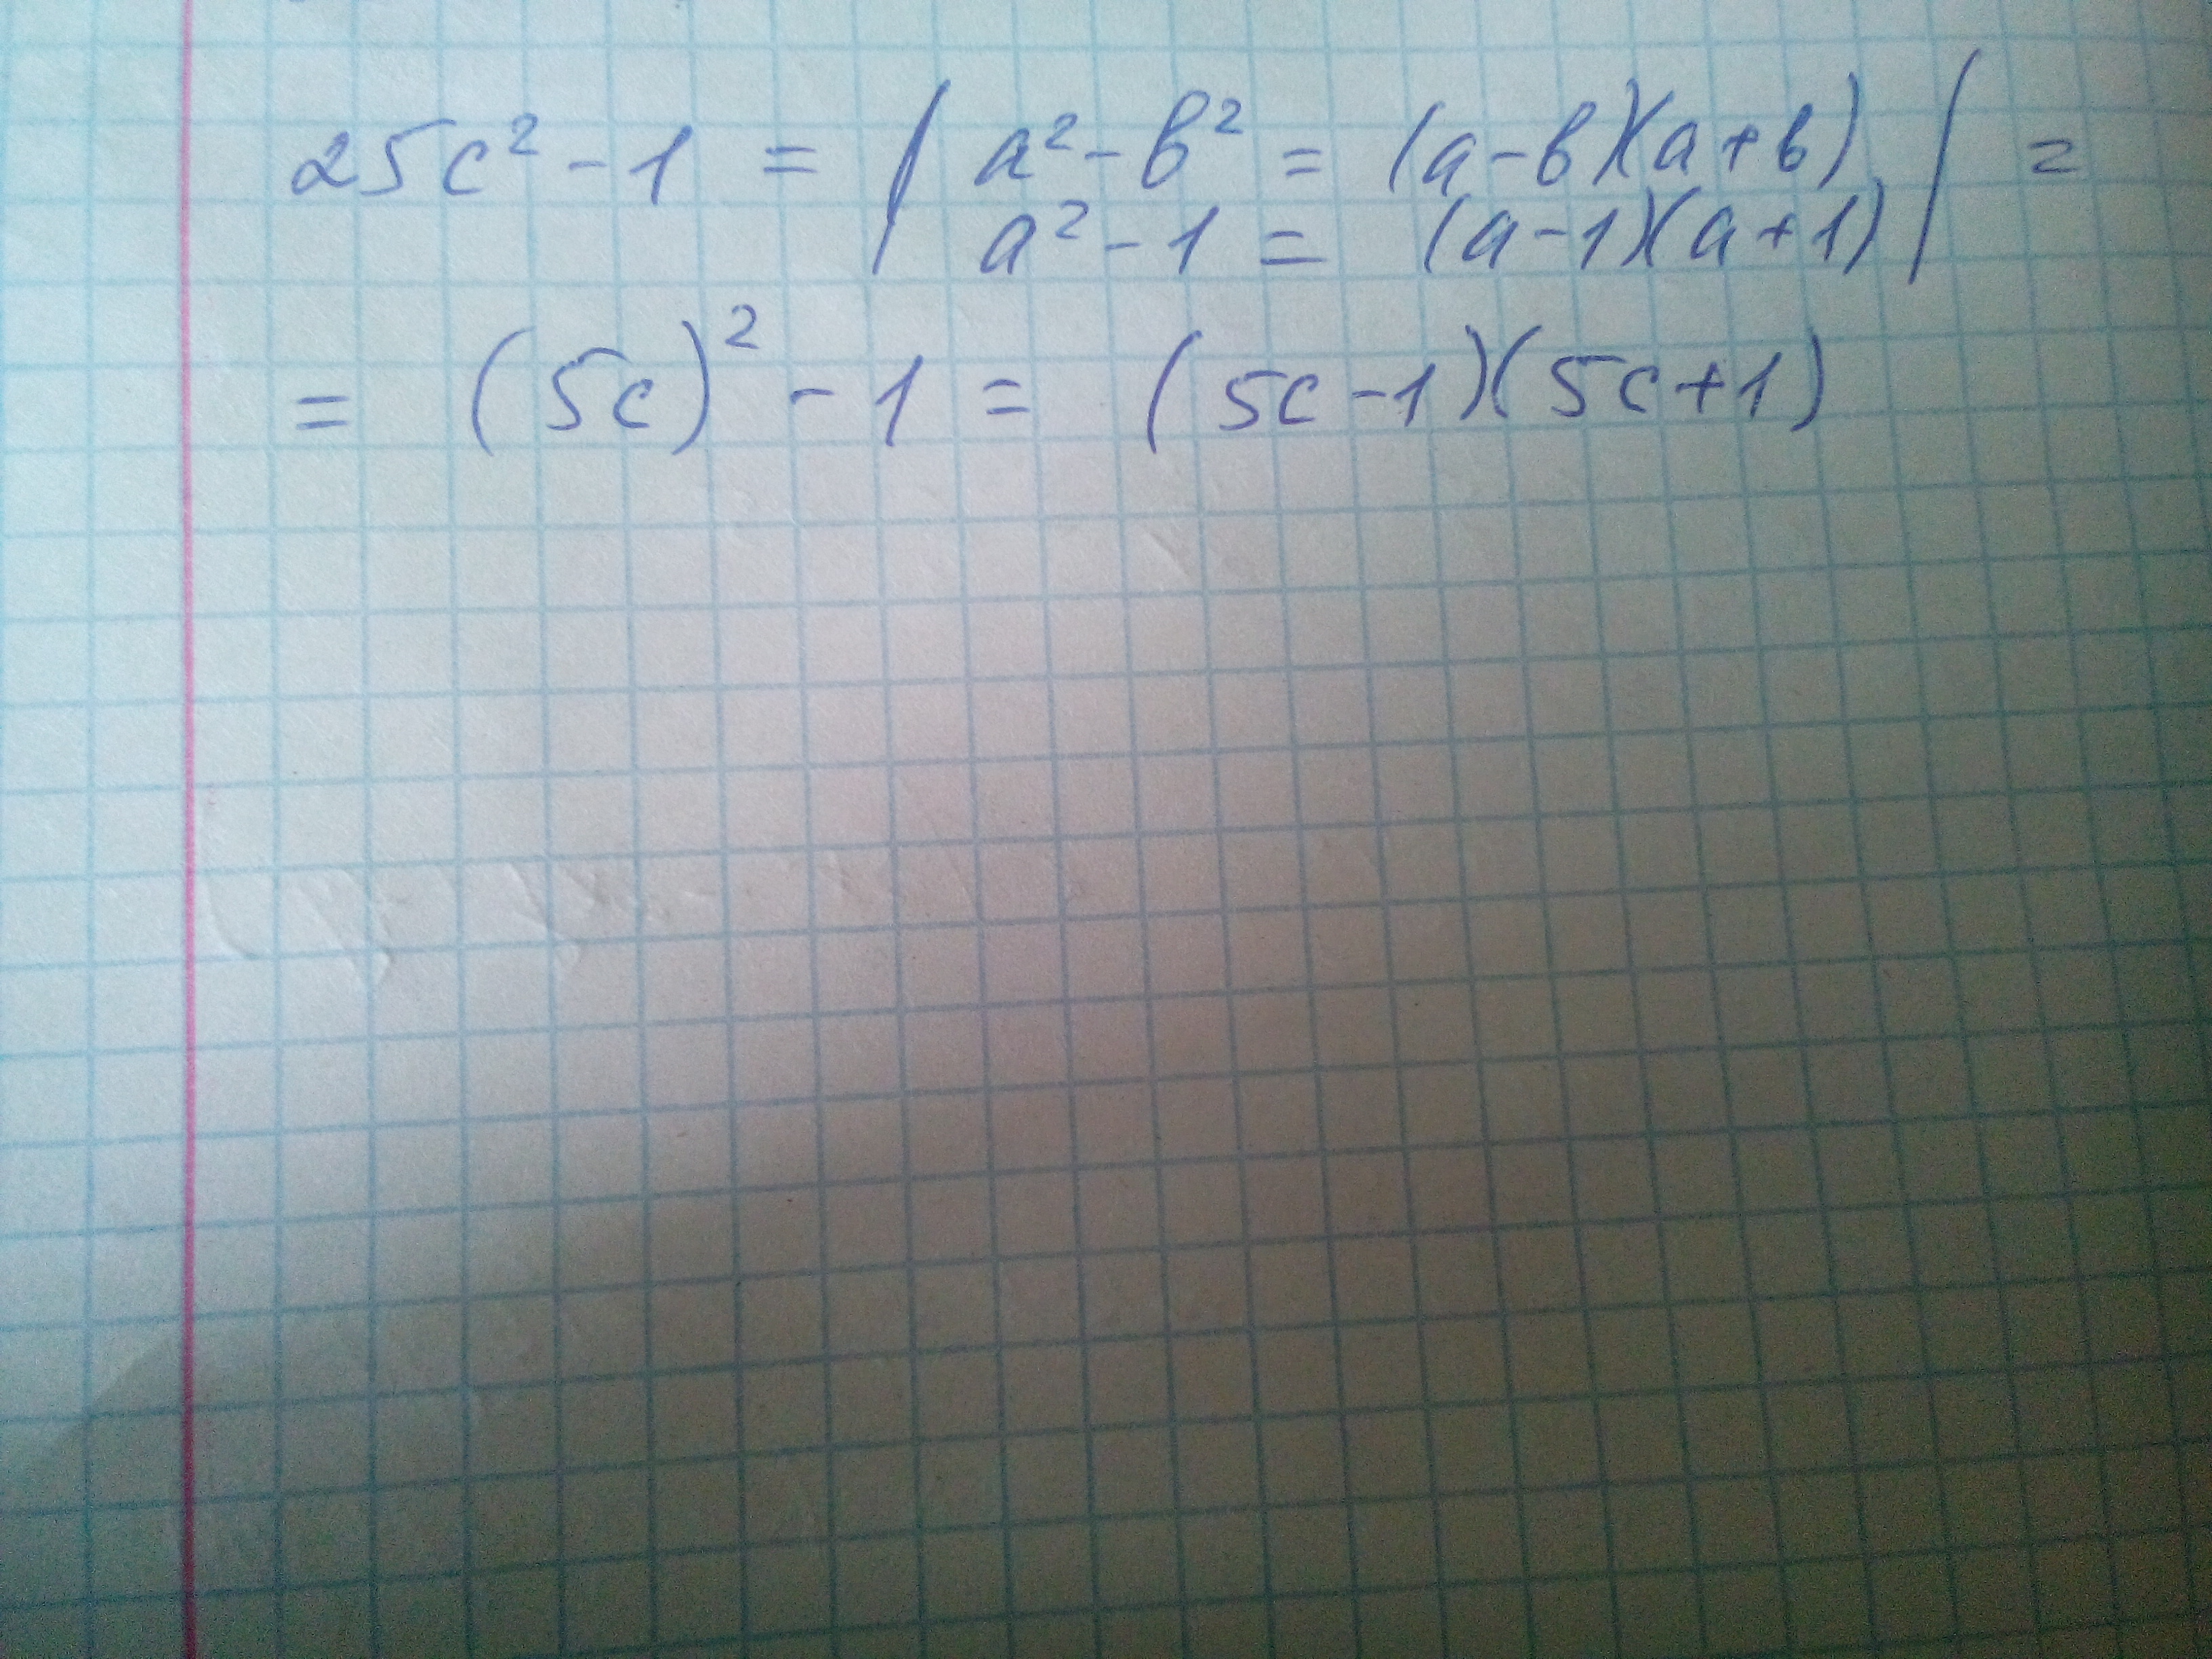 25c² - 1 = | a² - в² = (a - в)(a + в) | =
a² - 1 = (a - 1)(a + 1)
= (5c)² - 1 = (5c - 1)(5c + 1)